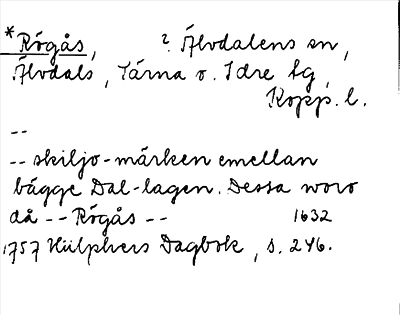 *Rögås, ? Älvdalens sn,
Älvdals, Särna o. Idre tg,
Kopp. l.
--
-- skiljo-märken emellan
bägge Dal-lagen. Dessa woro
då -- Rögås -- 1632
1757 Hülphers Dagbok, s. 246.